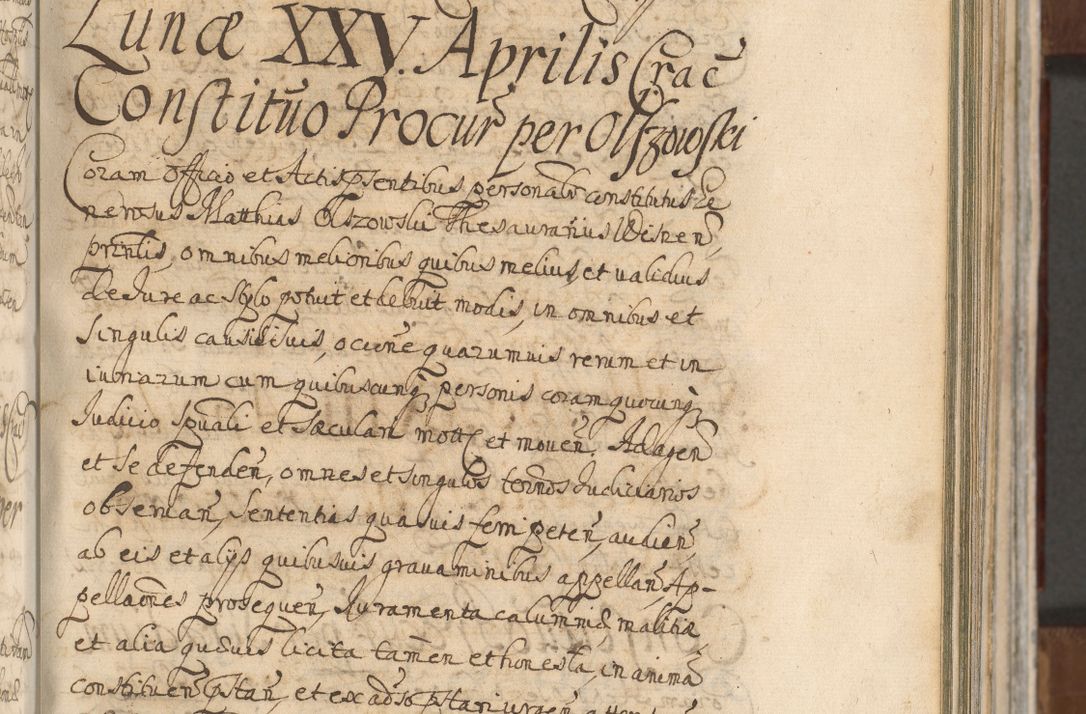 Lunæ XXV. Aprilis Crac̃
Constitũo Procur̃ per Olszowski
Coram officio et Actis p̃sentibus personalr̃ constitutus Ge
nerosus Matthias Olszowski Thesaurarius Wisnen̄,
prin̄lis, omnibus melioribus quibus melius, et validius
de Jure ac stylo potuit et debuit modis, in omnibus et
singulis causis suis, oc̄c̄ōne quarumvis rerum et in
iuriarum cum quibuscunq personis coram quocunq
Judicio Sp̄uali et sæculari mott et moven̄. Ad agen̄
et se defenden̄, omnes et singulos term̄nos Judiciarios
observan̄, sententias quasvis ferri peten̄, audien̄,
ab eis et alijs quibusvis gravaminibus appellan̄, Ap-
pellaōnes prosequen̄, Juramenta calumniæ malitiæ
et alia quævis licita tam̄en et honesta, in animā
constituen̄ p̄stan̄, et ex adṽso p̄stari